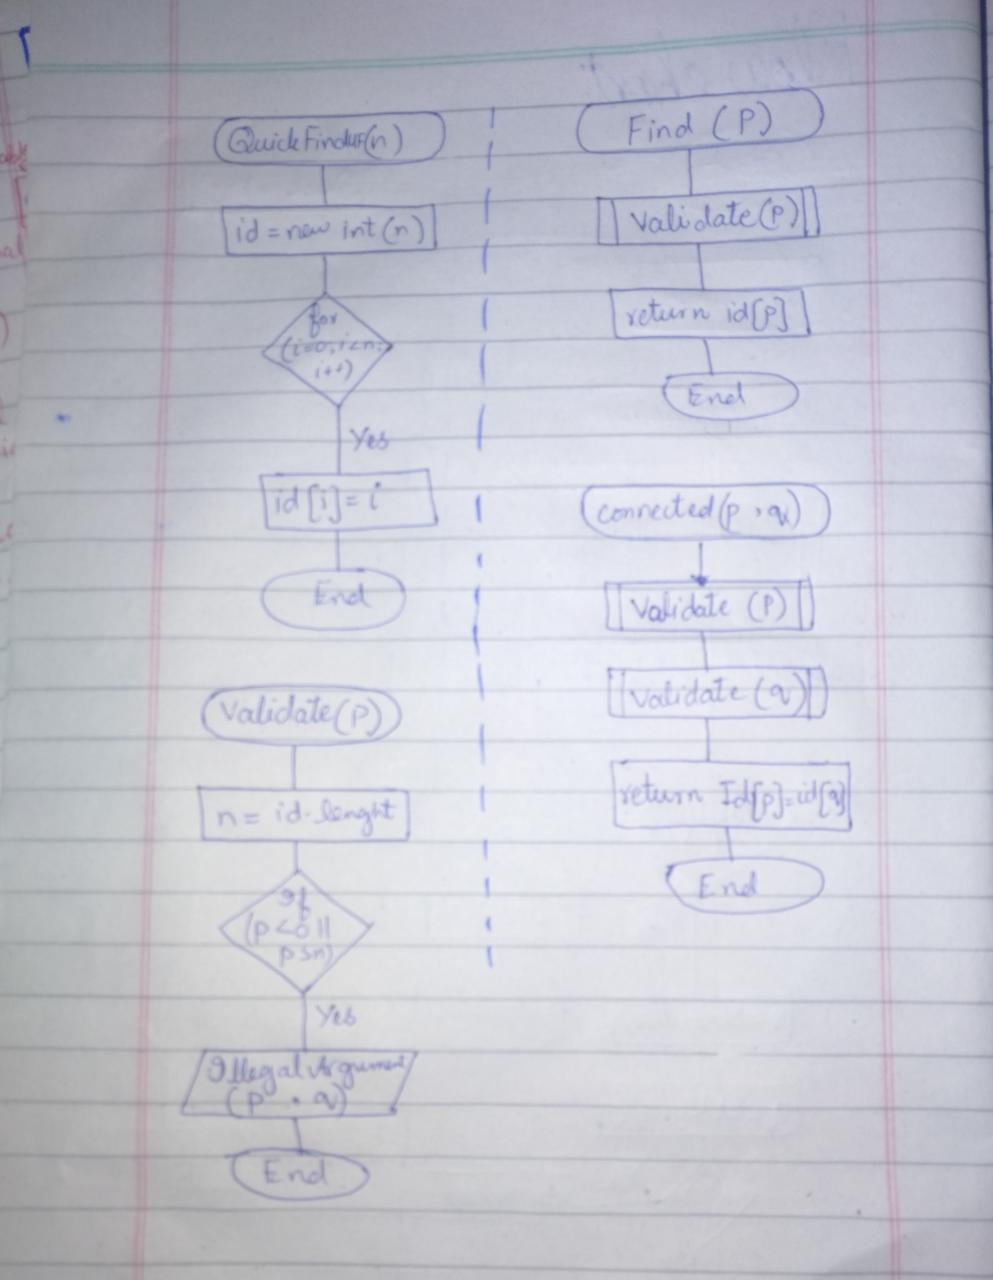 QuickFindUF(n)
id = new int (n)
for
(i=0; i<n;
i++)
Yes
id [i] = i
End
validate (p)
n = id. lenght
If
(p < 0 ||
p >n)
Yes
Illegal Argument
(p , q)
End
Find (P)
validate (p)
return id[p]
End
connected (p , q)
validate (P)
validate (q)
return Id[p]=id[q]
End